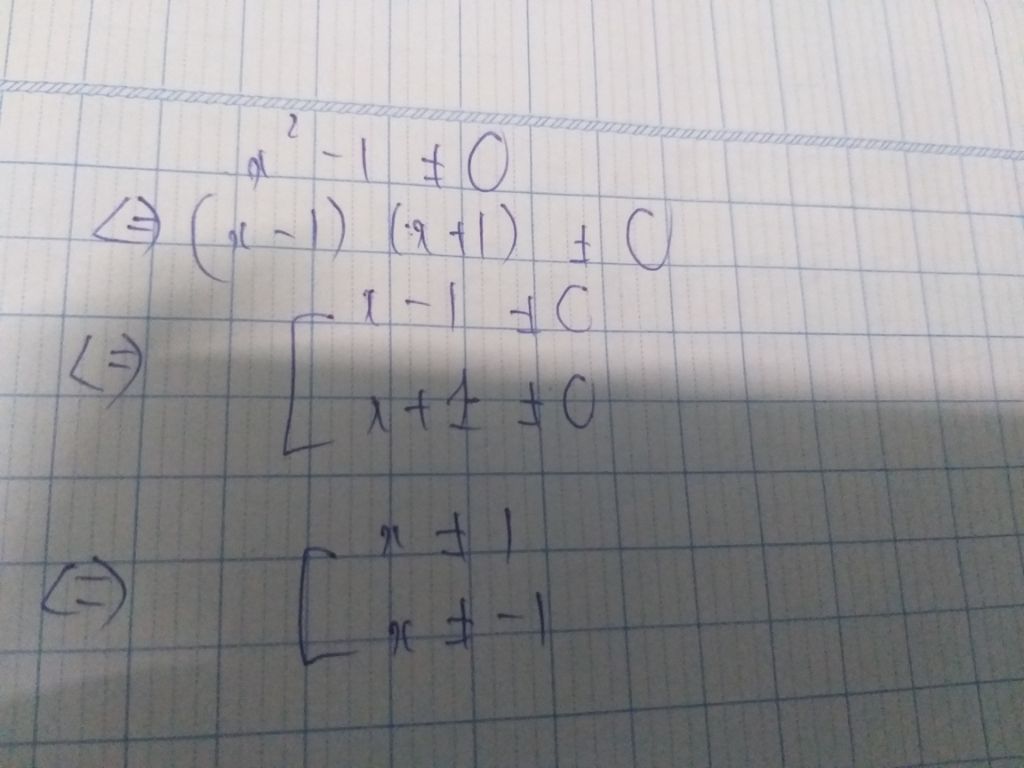 x² - 1 ≠ 0
<=> (x - 1) (x + 1) ≠ 0
<=> [ x - 1 ≠ 0
x + 1 ≠ 0
<=> [ x ≠ 1
x ≠ -1